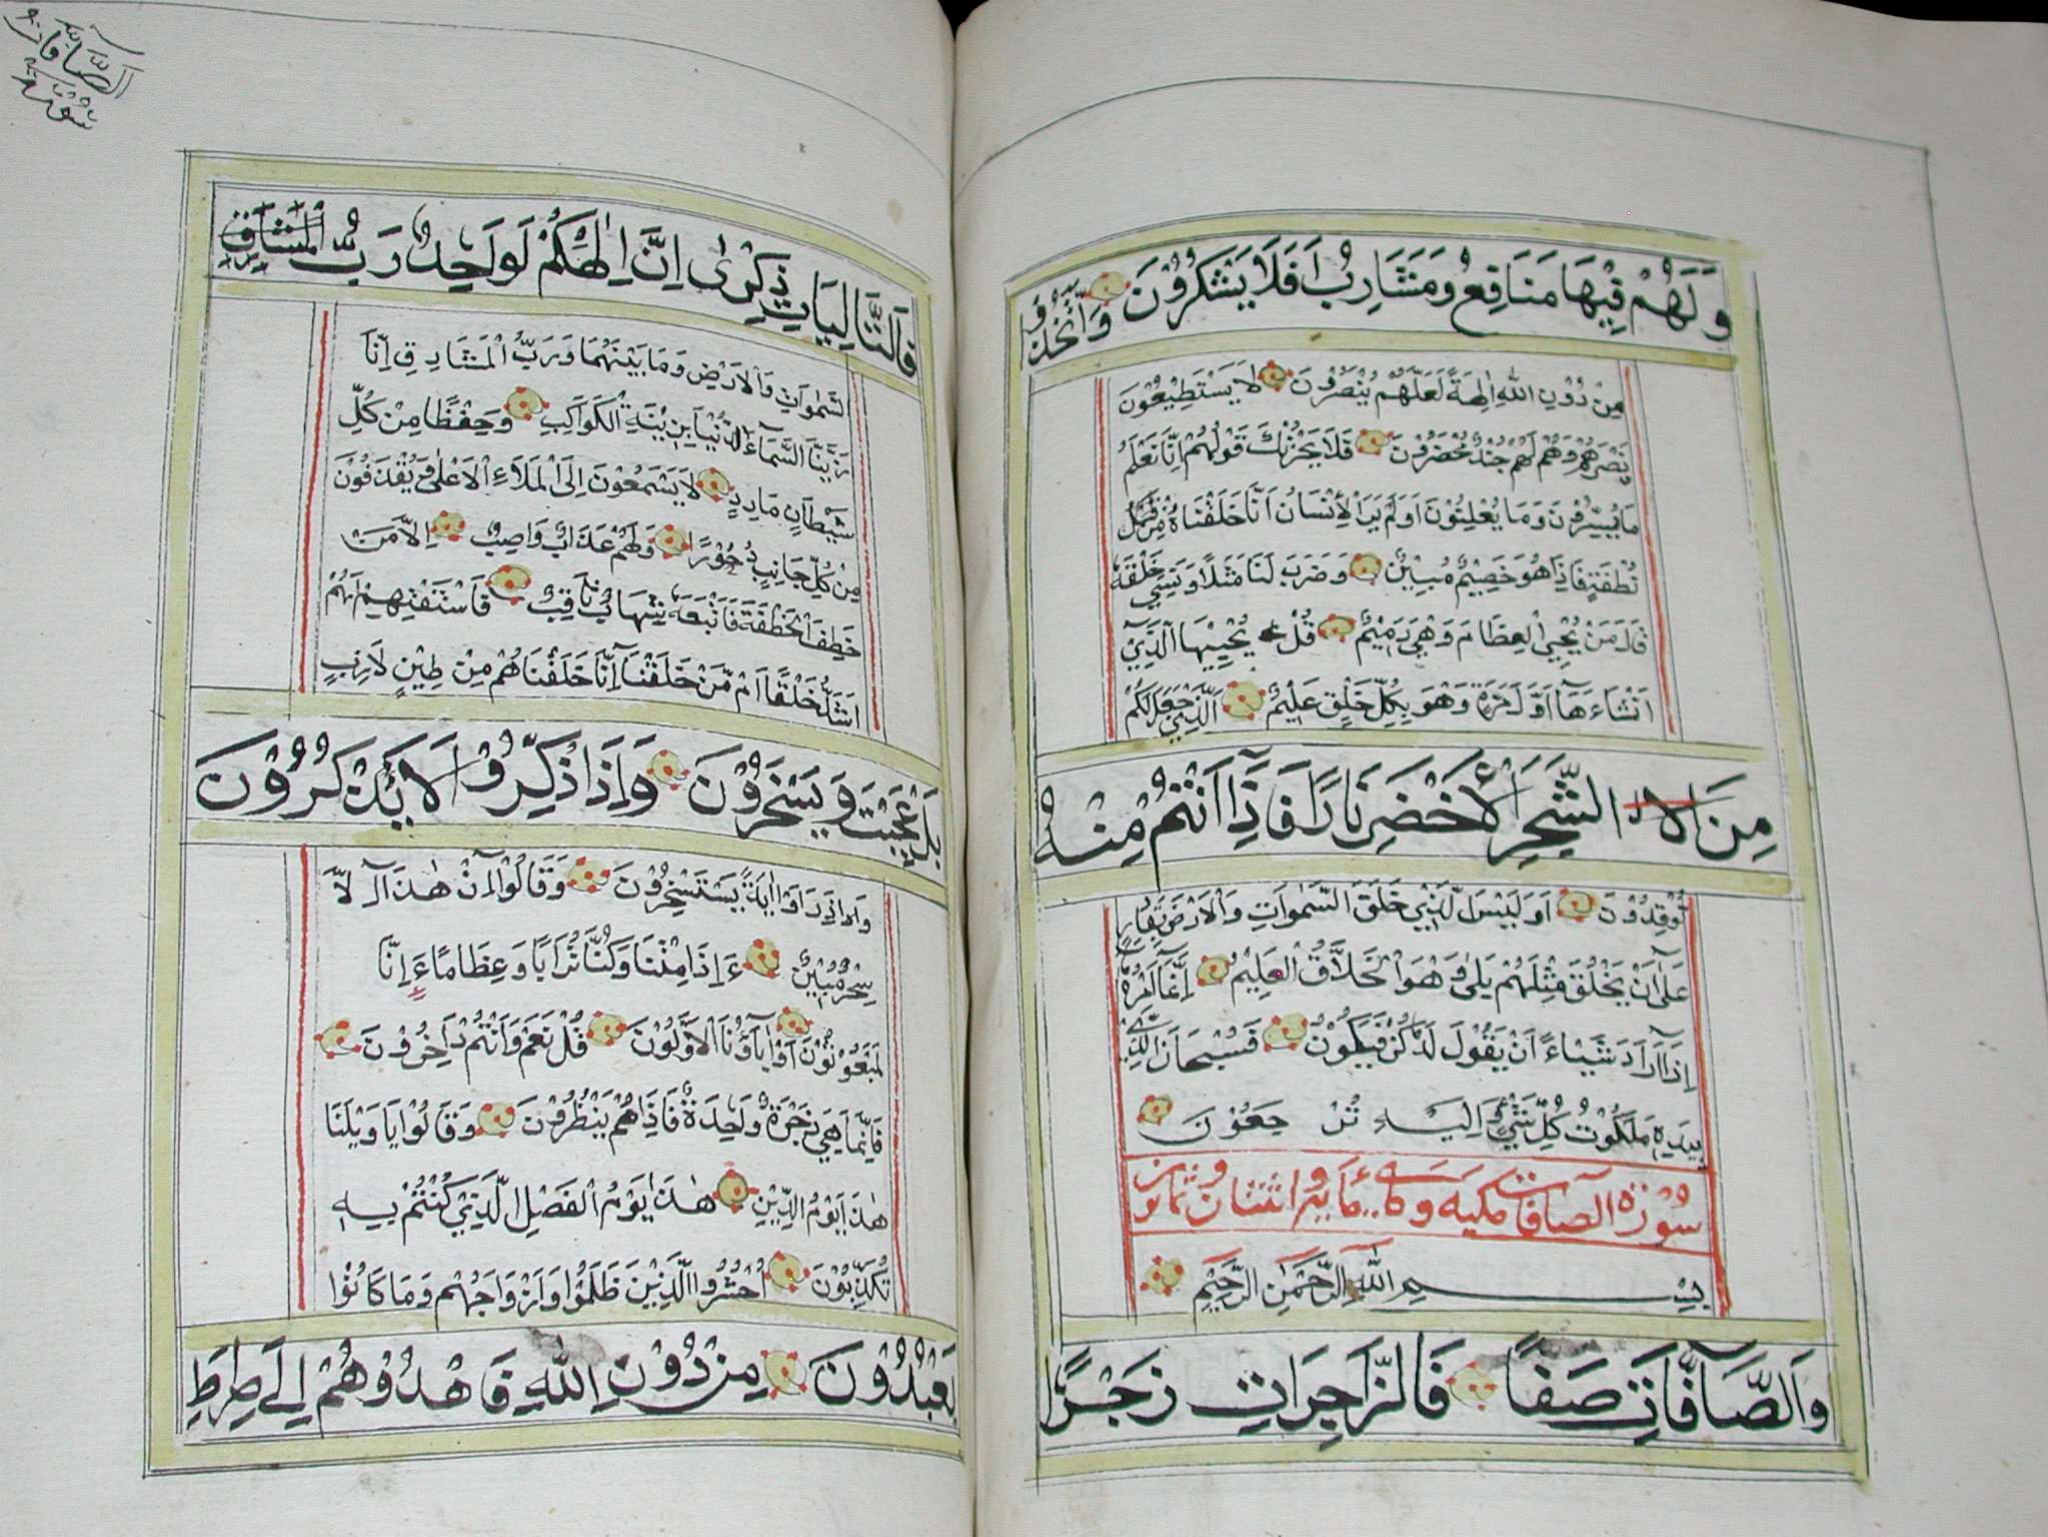 وَلَهُمْ فِيْهَا مَنَافِعُ وَمَشَارِبُ اَفَلَا يَشْكُرُوْنَ وَاتَّخَذُوْ
مِنْ دُوْنِ اللهِ اٰلِهَةً لَعَلَّهُمْ يُنْصَرُوْنَ لَا يَسْتَطِيْعُوْنَ
نَصْرَهُمْ وَهُمْ لَهُمْ جُنْدٌ مُحْضَرُوْنَ فَلَا يَحْزُنْكَ قَوْلُهُمْ اِنَّا نَعْلَمُ
مَا يُسِرُّوْنَ وَمَا يُعْلِنُوْنَ اَوَلَمْ يَرَ الْاِنْسَانُ اَنَّا خَلَقْنَاهُ مِنْ
نُطْفَةٍ فَاِذَا هُوَ خَصِيْمٌ مُبِيْنٌ وَضَرَبَ لَنَا مَثَلًا وَنَسِيَ خَلْقَهُ
قَالَ مَنْ يُحْيِي الْعِظَامَ وَهِيَ رَمِيْمٌ قُلْ يُحْيِيْهَا الَّذِيْٓ
اَنْشَاءَهَآ اَوَّلَ مَرَّةٍ وَهُوَ بِكُلِّ خَلْقٍ عَلِيْمٌ اَلَّذِيْ جَعَلَ لَكُمْ
مِنَ الشَّجَرِ الْاَخْضَرِ نَارًا فَاِذَآ اَنْتُمْ مِنْهُ
تُوْقِدُوْنَ اَوَلَيْسَ الَّذِيْ خَلَقَ السَّمٰوَاتِ وَالْاَرْضَ بِقَادِرٍ
عَلٰٓى اَنْ يَخْلُقَ مِثْلَهُمْ بَلٰى وَهُوَ الْخَلَّاقُ الْعَلِيْمُ اِنَّمَآ اَمْرُهُ
اِذَآ اَرَادَ شَيْئًا اَنْ يَقُوْلَ لَهُ كُنْ فَيَكُوْنُ فَسُبْحَانَ الَّذِيْ
بِيَدِهٖ مَلَكُوْتُ كُلِّ شَيْءٍ وَاِلَيْهِ تُرْجَعُوْنَ
سُوْرَة الصّافات مكية وهي مائة واثنتان وثمانون
بِسْــــمِ اللهِ الرَّحْمٰنِ الرَّحِيْمِ
وَالصَّآفَّاتِ صَفًّا فَالزَّاجِرَاتِ زَجْرًا
سورة الصافات
فَالتَّالِيَاتِ ذِكْرًى اِنَّ اِلٰهَكُمْ لَوَاحِدٌ رَبُّ
السَّمٰوَاتِ وَالْاَرْضِ وَمَا بَيْنَهُمَا وَرَبُّ الْمَشَارِقِ اِنَّا
زَيَّنَّا السَّمَآءَ الدُّنْيَا بِزِيْنَةِ الْكَوَاكِبِ وَحِفْظًا مِنْ كُلِّ
شَيْطَانٍ مَارِدٍ لَا يَسَّمَّعُوْنَ اِلَى الْمَلَاءِ الْاَعْلٰى وَيُقْذَفُوْنَ
مِنْ كُلِّ جَانِبٍ دُحُوْرًا وَلَهُمْ عَذَابٌ وَاصِبٌ اِلَّا مَنْ
خَطِفَ الْخَطْفَةَ فَاَتْبَعَهُ شِهَابٌ ثَاقِبٌ فَاسْتَفْتِهِمْ اَهُمْ
اَشَدُّ خَلْقًا اَمْ مَّنْ خَلَقْنَا اِنَّا خَلَقْنَاهُمْ مِنْ طِيْنٍ لَازِبٍ
بَلْ عَجِبْتَ وَيَسْخَرُوْنَ وَاِذَا ذُكِّرُوْا لَا يَذْكُرُوْنَ
وَاِذَا رَاَوْا اٰيَةً يَسْتَسْخِرُوْنَ وَقَالُوْا اِنْ هٰذَآ اِلَّا
سِحْرٌ مُبِيْنٌ ءَاِذَا مِتْنَا وَكُنَّا تُرَابًا وَعِظَامًا ءَاِنَّا
لَمَبْعُوْثُوْنَ اَوَاٰبَآؤُنَا الْاَوَّلُوْنَ قُلْ نَعَمْ وَاَنْتُمْ دَاخِرُوْنَ
فَاِنَّمَا هِيَ زَجْرَةٌ وَاحِدَةٌ فَاِذَا هُمْ يَنْظُرُوْنَ وَقَالُوْا يَا وَيْلَنَا
هٰذَا يَوْمُ الدِّيْنِ هٰذَا يَوْمُ الْفَصْلِ الَّذِيْ كُنْتُمْ بِهٖ
تُكَذِّبُوْنَ اُحْشُرُوا الَّذِيْنَ ظَلَمُوْا وَاَزْوَاجَهُمْ وَمَا كَانُوْا
يَعْبُدُوْنَ مِنْ دُوْنِ اللهِ فَاهْدُوْهُمْ اِلٰى صِرَاطِ